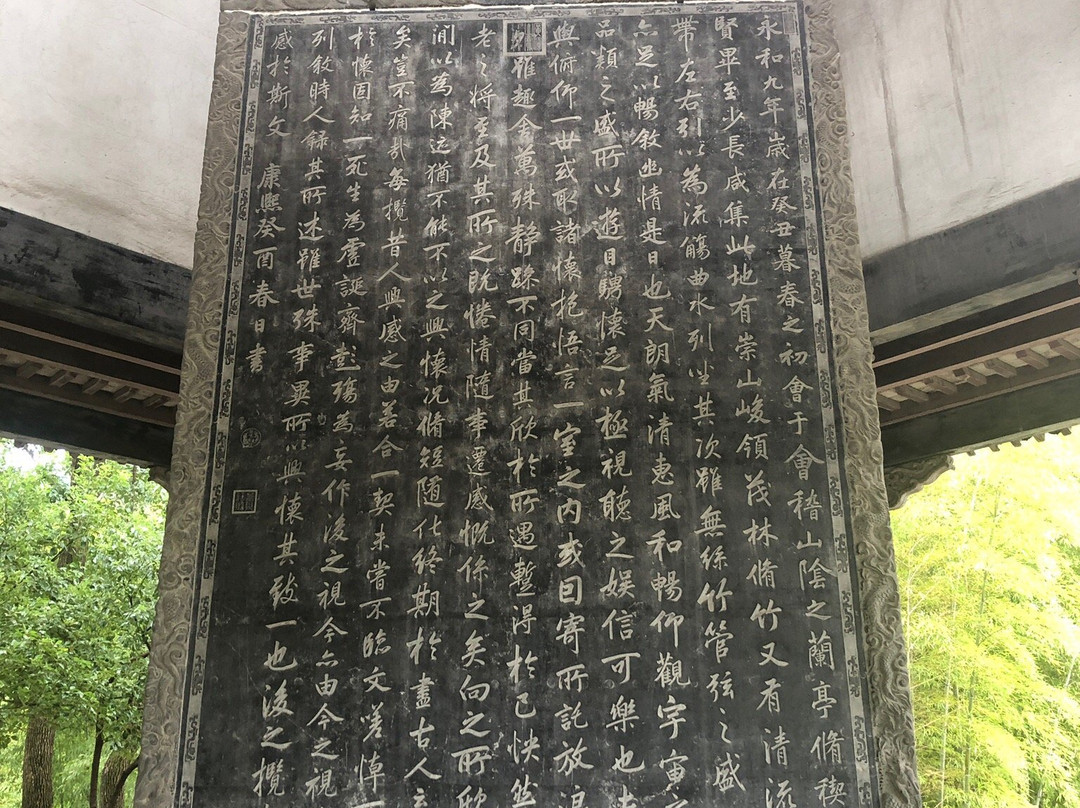 永和九年歲在癸丑暮春之初會于會稽山陰之蘭亭脩稧
賢畢至少長咸集此地有崇山峻領茂林脩竹又有清流
帶左右引以為流觴曲水列坐其次雖無絲竹管弦之盛
亦足以暢敘幽情是日也天朗氣清惠風和暢仰觀宇宙之
品類之盛所以遊目騁懷足以極視聽之娛信可樂也夫
與俯仰一世或取諸懷抱悟言一室之內或因寄所託放浪
雖趣舍萬殊静躁不同當其欣於所遇暫得於己快然
老之將至及其所之既惓情隨事遷感慨係之矣向之所欣
閒以為陳迹猶不能不以之興懷況脩短隨化終期於盡古人云
矣豈不痛哉每攬昔人興感之由若合一契未嘗不臨文嗟悼
於懷固知一死生為虛誕齊彭殤為妄作後之視今亦由今之視
列敘時人錄其所述雖世殊事異所以興懷其致一也後之攬
感於斯文 康熙癸酉春日書